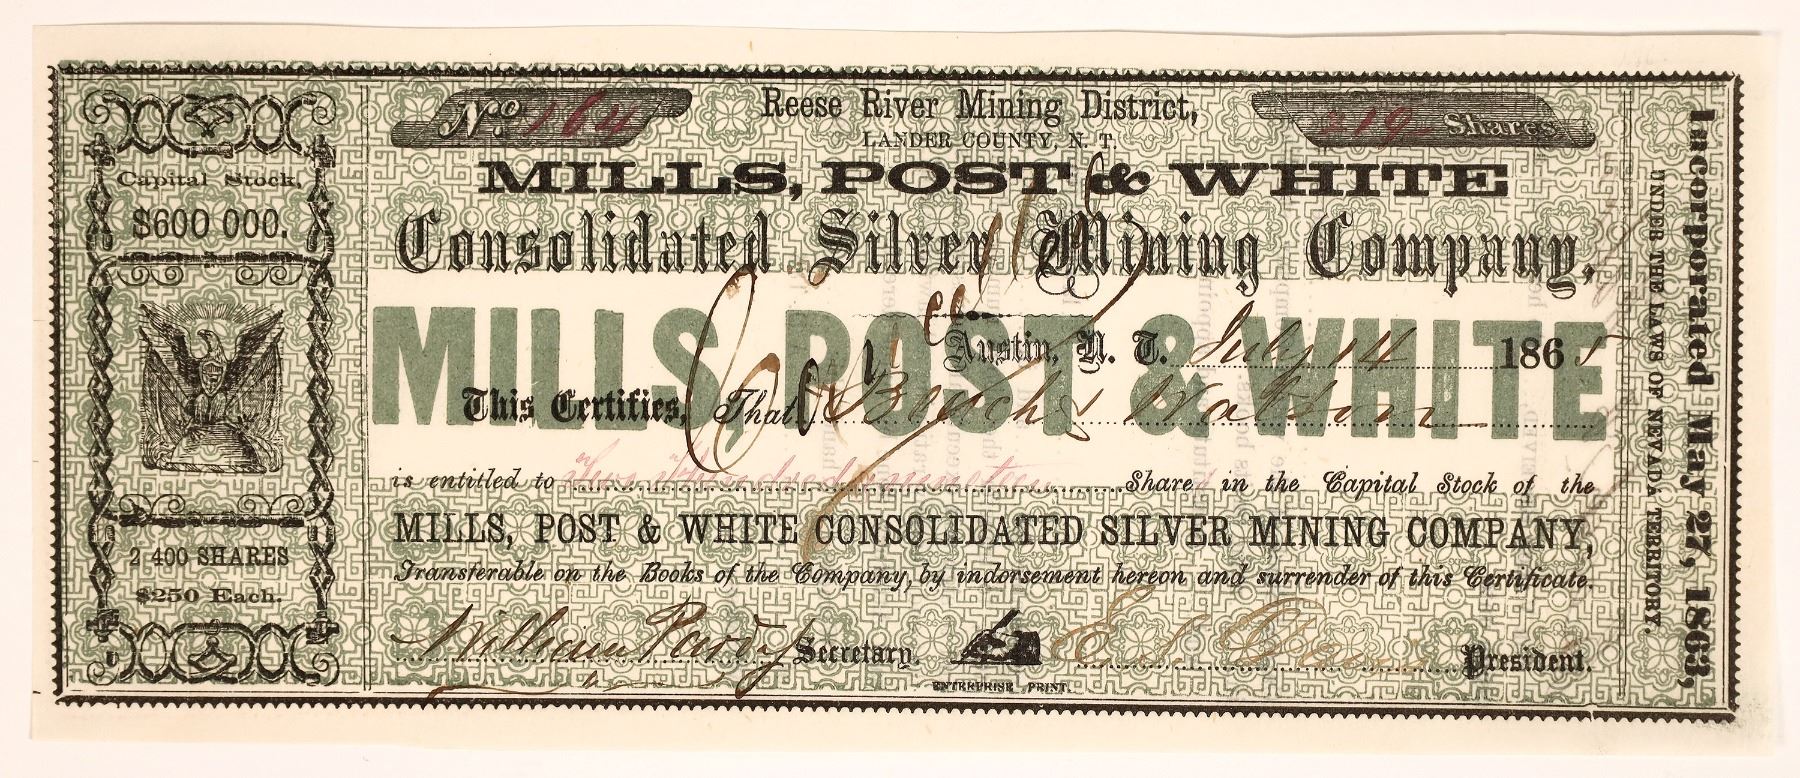 No. 164
Reese River Mining District,
219 Shares
LANDER COUNTY, N. T.
Capital Stock.
$600 000.
2 400 SHARES
$250 Each.
MILLS, POST & WHITE
Consolidated Silver Mining Company,
MILLS, POST & WHITE
Austin, N. T. July 14 1865
This Certifies, That
is entitled to Two Hundred nineteen Shares in the Capital Stock of the
MILLS, POST & WHITE CONSOLIDATED SILVER MINING COMPANY,
Transferable on the Books of the Company, by indorsement hereon and surrender of this Certificate.
William Purdy Secretary.
President.
ENTERPRISE PRINT.
Incorporated May 27, 1863,
UNDER THE LAWS OF NEVADA TERRITORY.